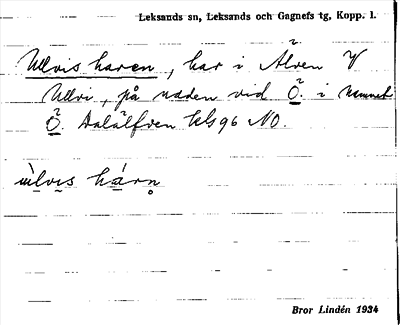 Leksands sn, Leksands och Gagnefs tg, Kopp. l.
Ullvis haren, har i Älven V
Ullvi, på udden vid Ö. i namnet
Ö. Dalälfven kbl 96 NO.
ùlvis hárn
Bror Lindén 1934